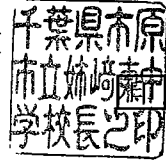 千葉県市原
市立姉崎東中
学校長之印